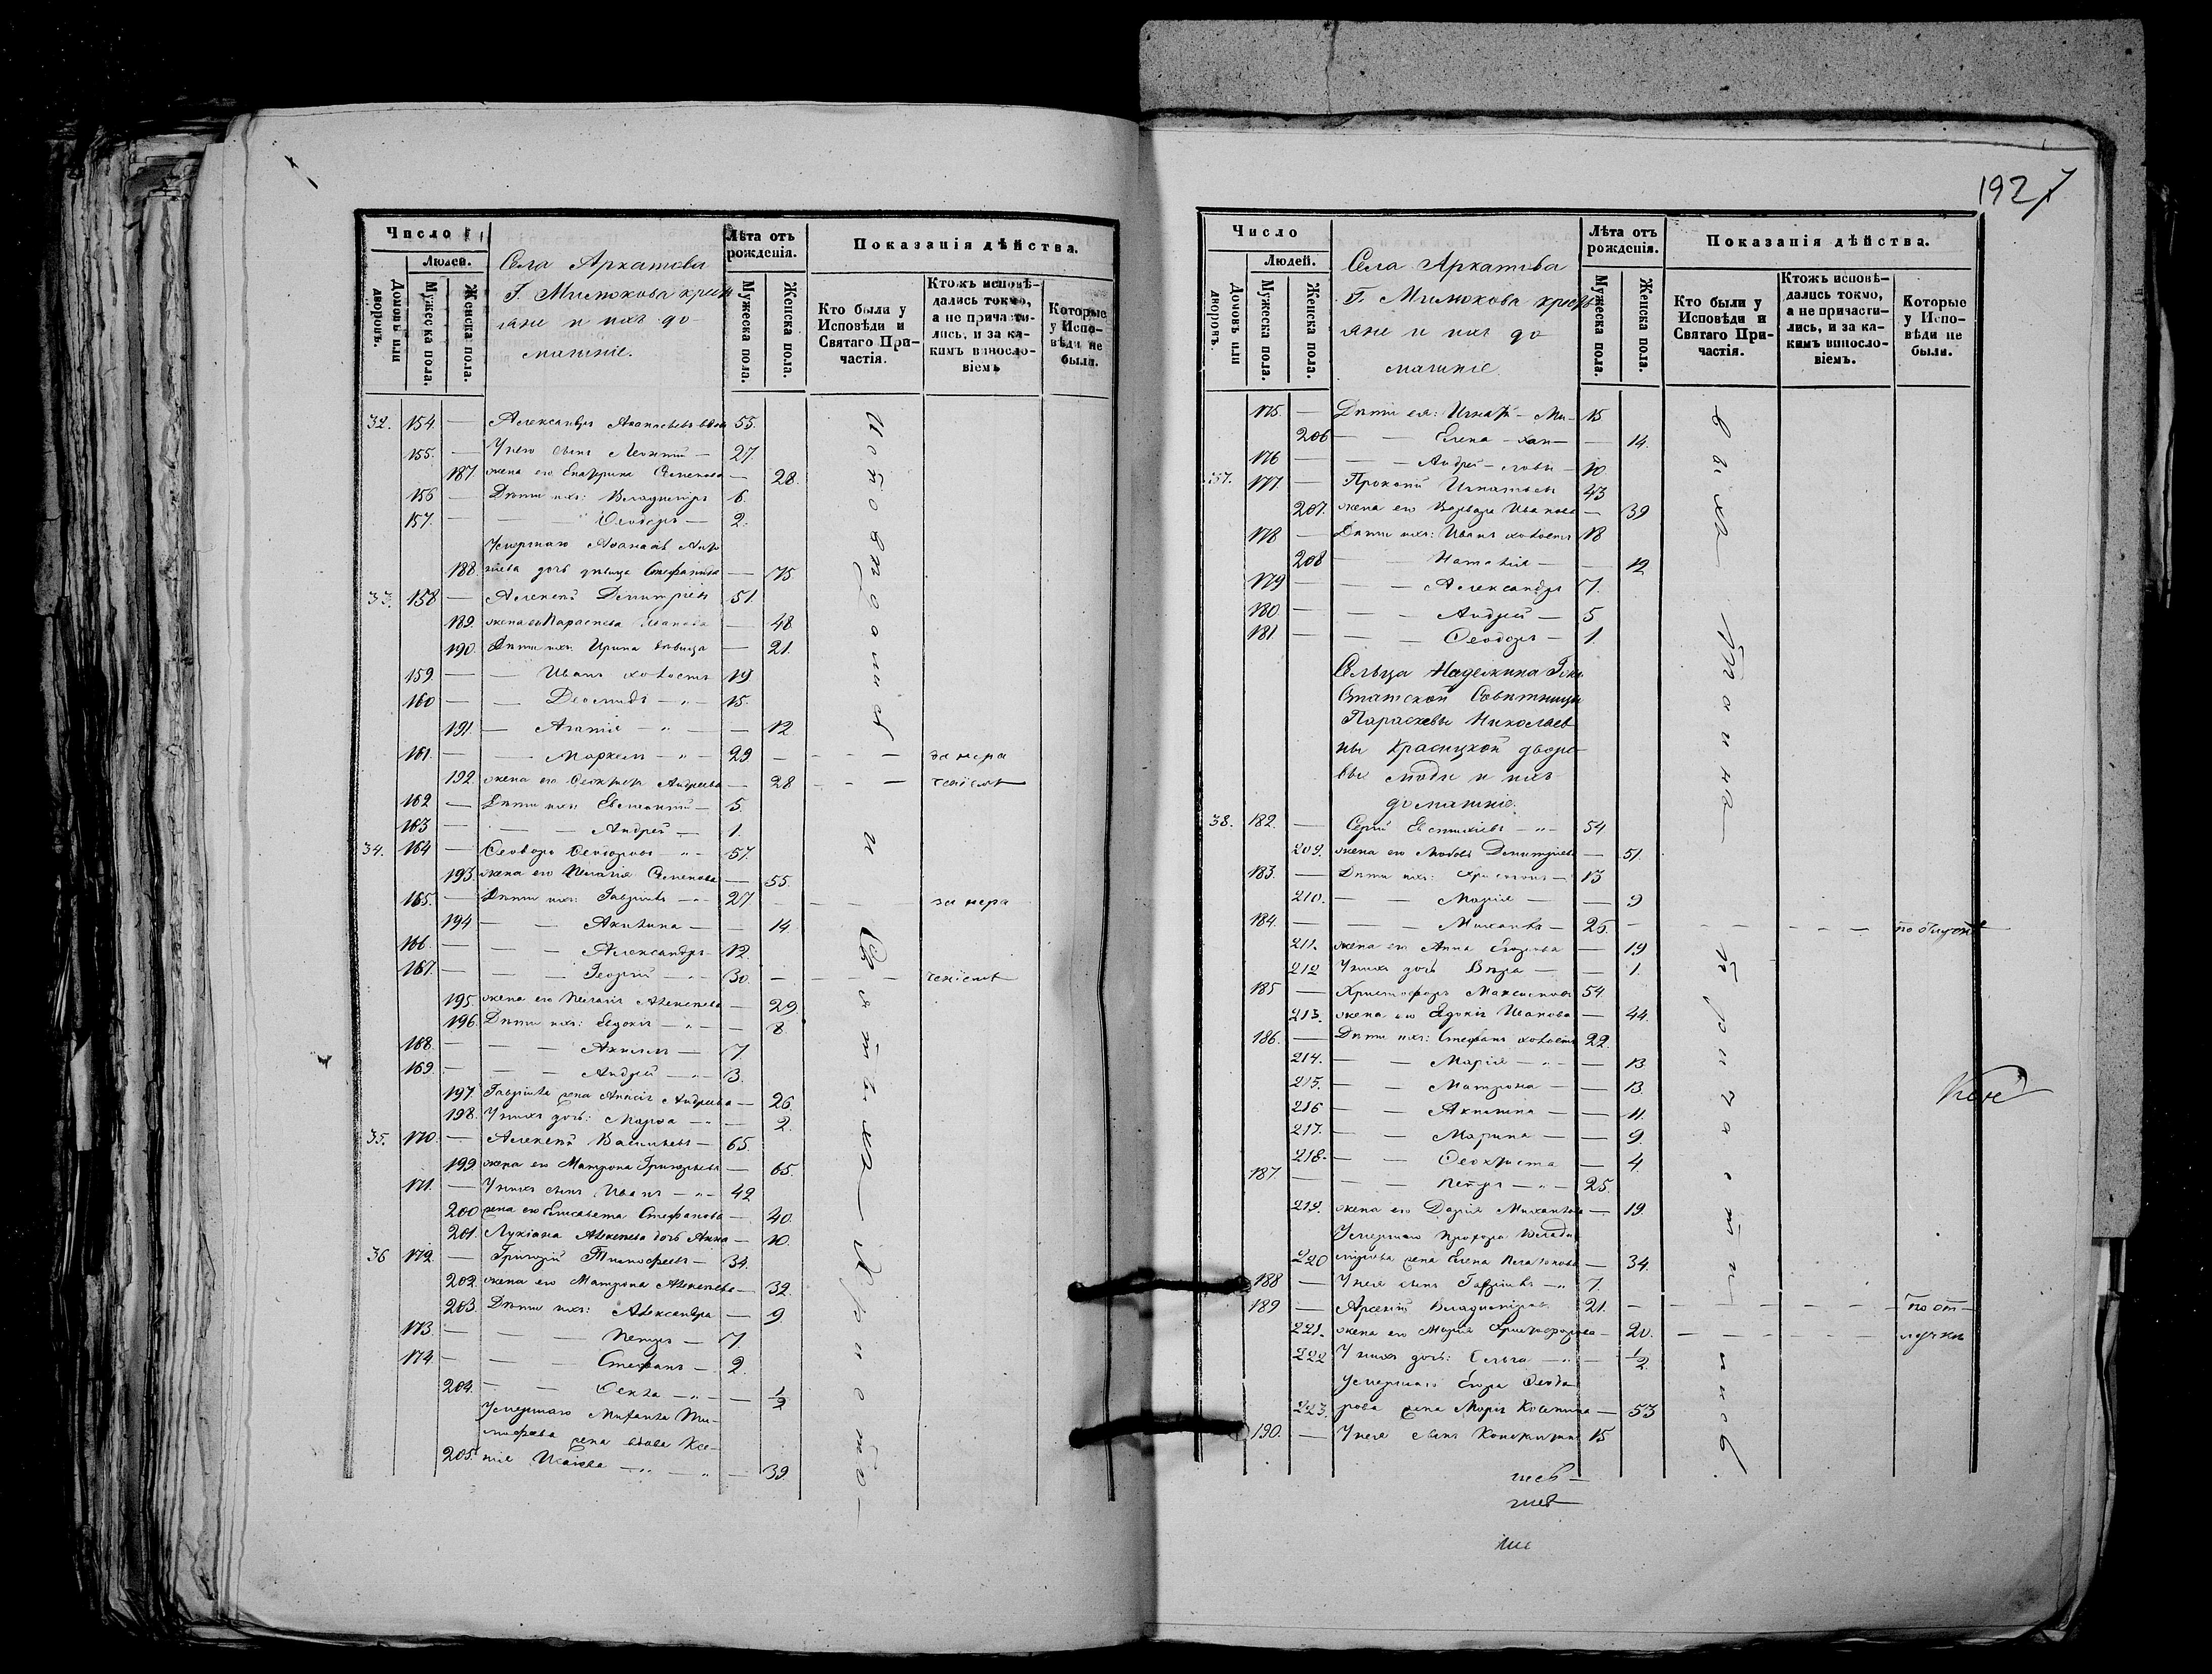 Число
Людей.
Домовъ или дворовъ.
Мужеска пола.
Женска пола.
Села Архатова
Г. Милюкова кресть
яне и ихъ до
машніе.
Лѣта отъ рожденія.
Мужеска пола.
Женска пола.
Показанія дѣйства.
Кто были у Исповѣди и Святаго Причастія.
Ктожъ исповѣдались токмо, а не причастились, и за какимъ винословіемъ
Которые у Исповѣди не были.
32. 154. — Александръ Аѳанасьевъ вдовъ 55.
155. — У него сынъ Леонтій — 27.
187. жена его Екатерина Семенова — 28.
156 — Дѣти ихъ: Владиміръ 6.
157. — — Ѳеодоръ — 2.
Умершаго Аѳанасія
188. дочь дѣвица Стефанида — 75
33. 158 — Алексѣй Димитріевъ 51.
189. жена его Параскева Иванова — 48
190. Дѣти ихъ: Ирина дѣвица — 21.
159. — — Иванъ холостъ 19.
160 — — Леонидъ — 15.
191. — Агапія — — 12
161. — — Маркелъ — 29 — — — за нера
192. жена его Андреева — 28 — — — ченіемъ
162 — Дѣти ихъ: Евлампій — 5.
163 — — Андрей — 1.
34. 164 — Ѳеодоръ Ѳеодоровъ — 57.
193. жена его Пелагія Семенова — 55.
165. — Дѣти ихъ: Гавріилъ — 27 — — — за нера
194 — — Акилина — — 14
166. — — — Александръ 12.
167. — — — Георгій — 30. — — ченіемъ
195. жена его Пелагія Алексѣева — 29.
196. Дѣти ихъ: Евдокія — — 8
168. — — Акимъ — 7.
169. — — — Андрей — 3.
197. Гавріила жена Анисія Андреева — 26.
198. У нихъ дочь: Марѳа — — 2.
35. 170. — Алексѣй Васильевъ — 65.
199. жена его Матрона Григорьева — 65.
171. — У нихъ сынъ Иванъ — 42
200 жена его Елисавета Стефанова — 40.
201. Лукіана Алексѣева дочь Анна — 10.
36 172. — Григорій Тимоѳеевъ — 34.
202. жена его Матрона Алексѣева — 32.
203. Дѣти ихъ: Александра — 9
173. — — — Петръ — 7.
174. — — Стефанъ — 2.
204. — — Ѳекла — — 1/2
Умершаго Михаила Ти-
моѳеева жена вдова Ксе-
205. нія Исаіева — — 39.
Исповѣдались и Святыхъ Христо-
1927
Число
Людей.
Домовъ или дворовъ.
Мужеска пола.
Женска пола.
Села Архатова
Г. Милюкова кресть
яне и ихъ до
машніе.
Лѣта отъ рожденія.
Мужеска пола.
Женска пола.
Показанія дѣйства.
Кто были у Исповѣди и Святаго Причастія.
Ктожъ исповѣдались токмо, а не причастились, и за какимъ винословіемъ.
Которые у Исповѣди не были.
175. — Дѣти ея: Игнатій — Ми- 15.
206 — — Елена — хаи — 14.
176 — — — Андрей — ловы — 10.
37. 177. — Прокопій Игнатьевъ 43
207. жена его Варвара Иванова — 39
178 — Дѣти ихъ: Иванъ холостъ 18
208 — — Наталія — — 12
179 — — — Александръ 7.
180 — — — Андрей — 5
181 — — — Ѳеодоръ — 1.
Сельца Надежкина Гжи
Статской Совѣтницы
Параскевы Николаев
ны Красицкой дворо
вые люди и ихъ
домашніе.
38. 182. — Сергій Евстихіевъ — 54
209. жена его Любовь Димитріева — 51.
183. — Дѣти ихъ: — 13
210. — — Марія — — 9
184. — — — Михаилъ — 25. — — — — по отлучкѣ
211. жена его Анна Егорова — 19
212 У нихъ дочь Вѣра — — 1.
185 — Христофоръ Максимовъ 54.
213. жена его Евдокія Иванова — 44.
186. — Дѣти ихъ: Стефанъ холостъ 22.
214. — — Марія — — 13.
215. — — Матрона — — 13.
216 — — Акилина — — 11.
217. — — Марина — — 9.
218. — — Ѳеоктиста — 4.
187. — — — Петръ — 25.
219. жена его Дарія Михаилова — 19.
Умершаго Прохора Влади
220 мірова жена Елена — 34.
188 — У нея сынъ Гавріилъ — 7.
189 — Арсеній Владиміровъ 21. — — — — по от-
221. жена его Марія Христофорова — 20. — — — — лучкѣ
222 У нихъ дочь: Ольга — — 1/2
Умершаго Егора Ѳеодо
223. рова жена Марія — 53
190. — У нея сынъ 15
выхъ Таинъ причастились.